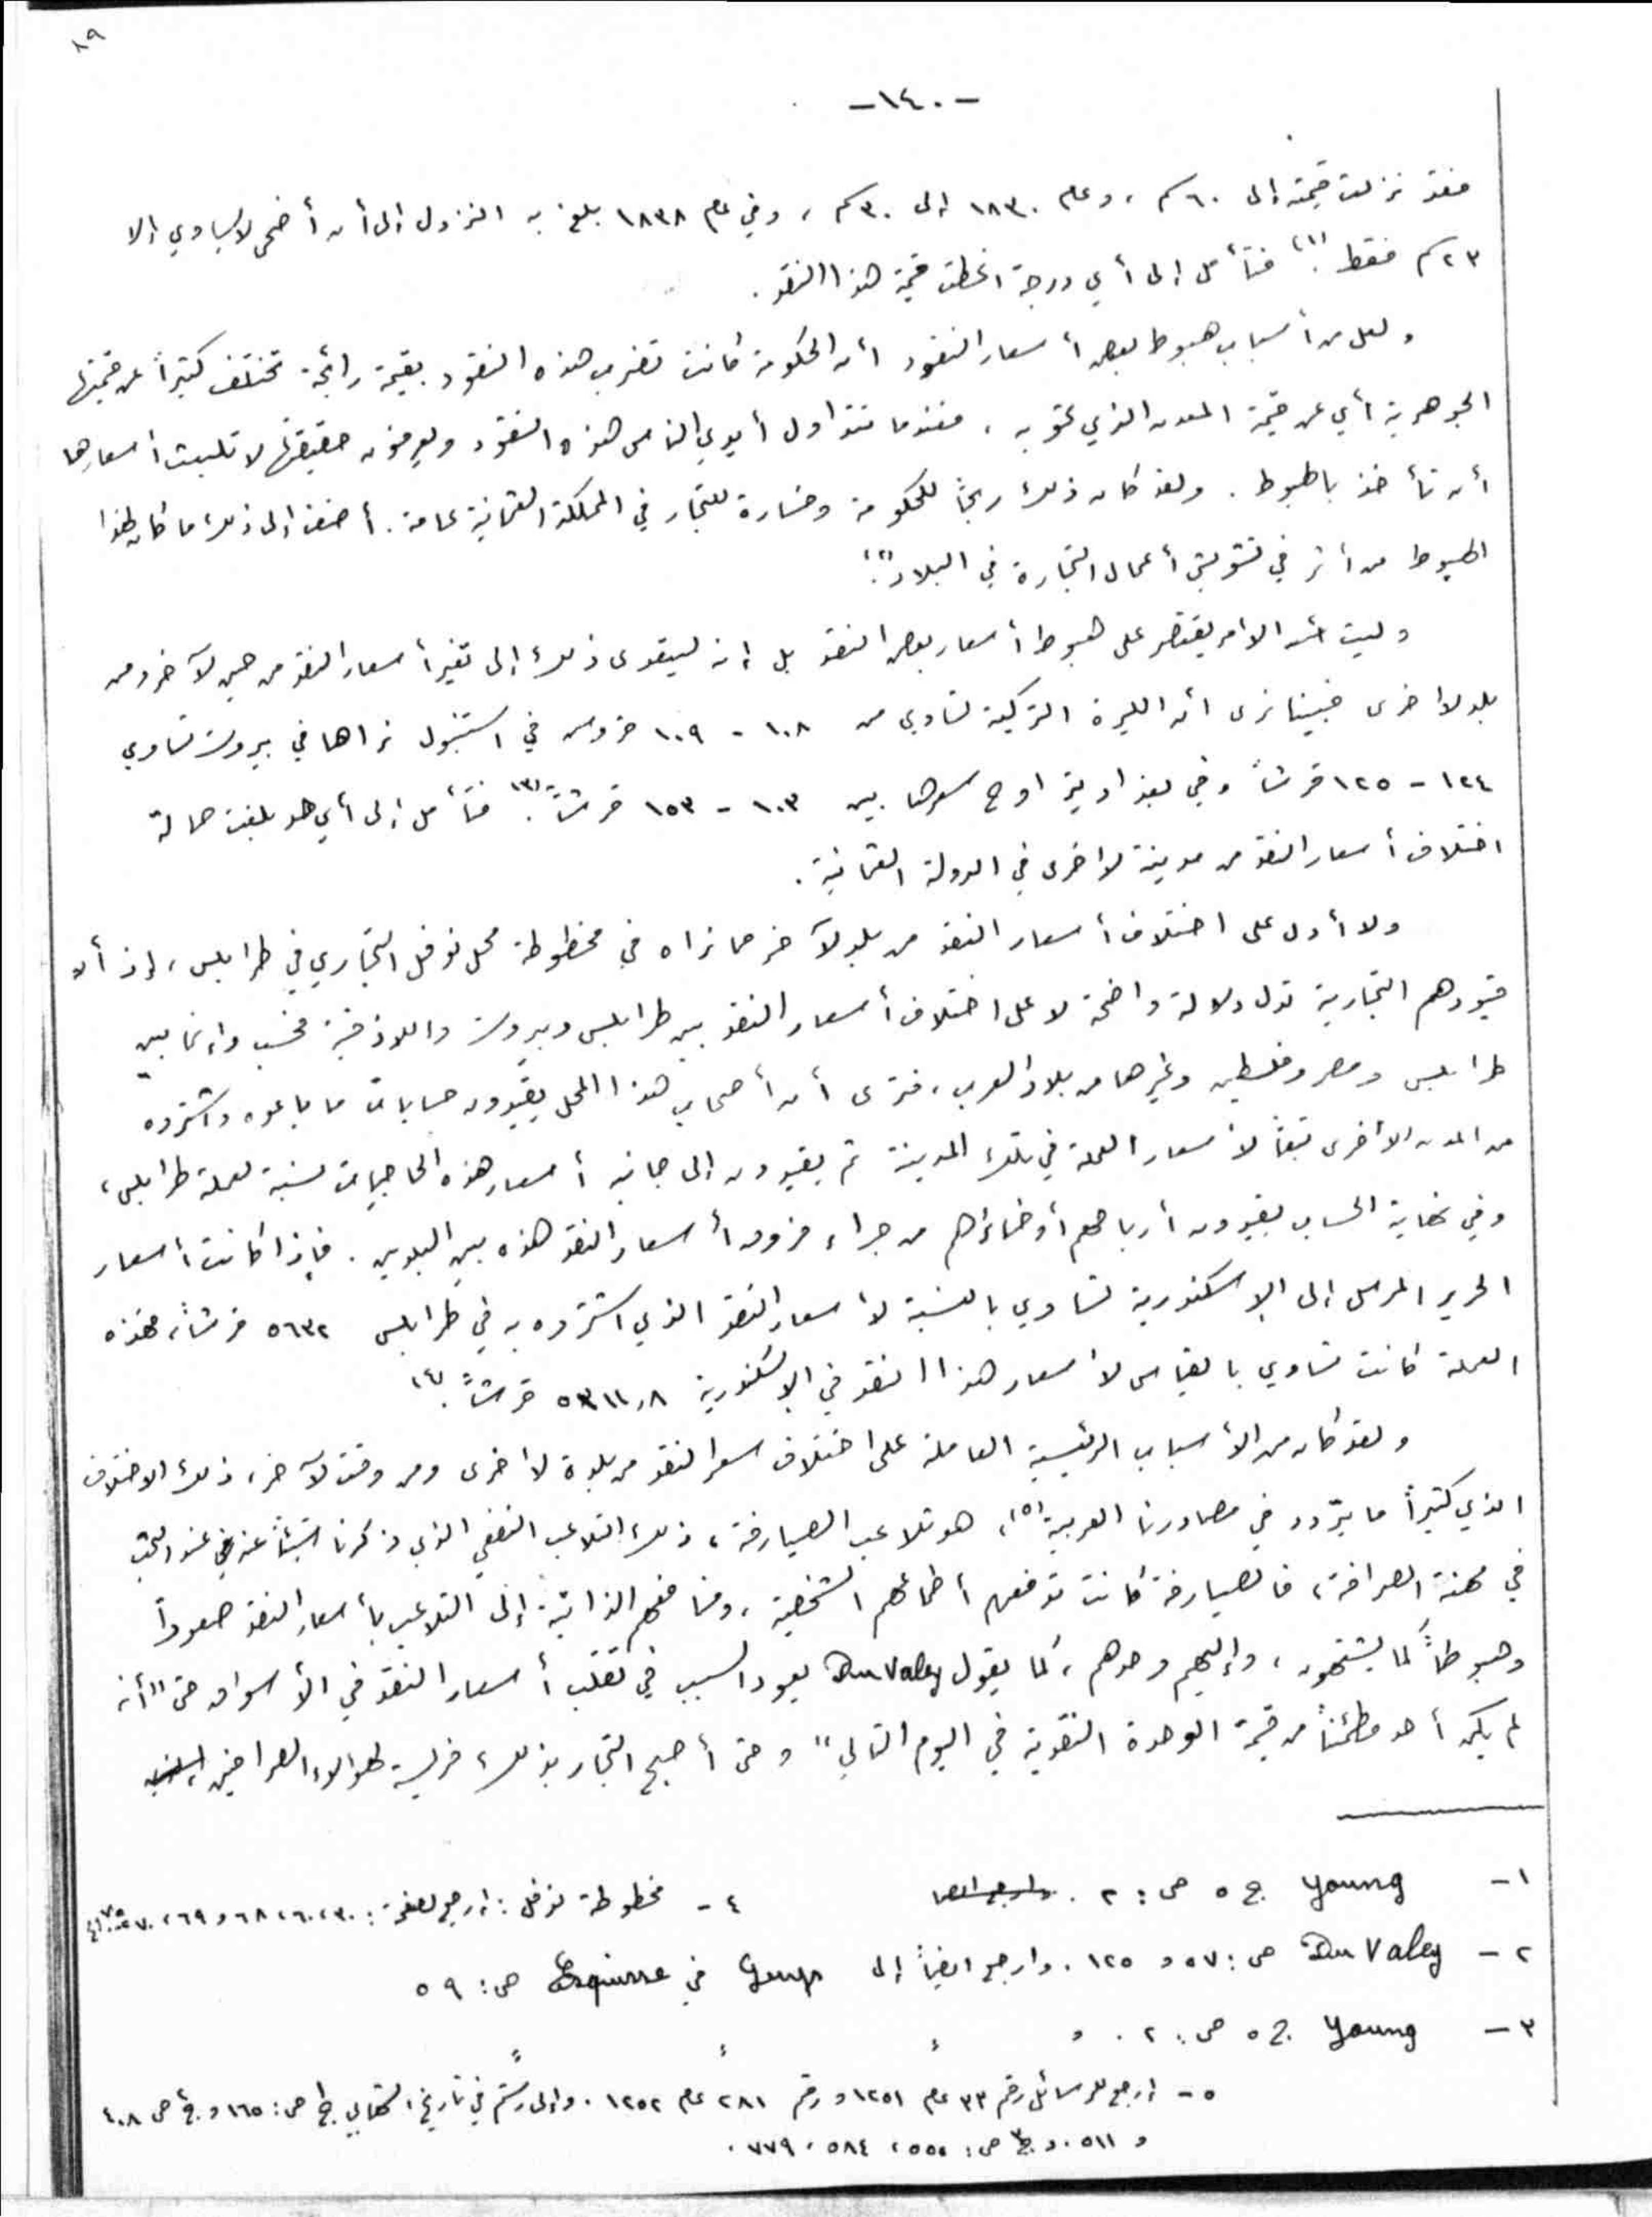 ٨٩
-١٤٠-
فقد نزلت قيمته إلى ٦٠ كم ، وعام ١٨٣٠ إلى ٣٠ كم ، وفي عام ١٨٣٨ بلغ به النزول إلى أن أضحى لا يساوي إلا
٢٣ كم فقط (١). فتأمل إلى أي درجة انحطت قيمة هذا النقد .
ولعل من أسباب هبوط بعض أسعار النقود أن الحكومة كانت تضرب هذه النقود بقيمة رائجة تختلف كثيراً عن قيمتها
الجوهرية أي عن قيمة المعدن الذي تحتويه ، فعندما تتداول أيدي الناس هذه النقود ويعرفون حقيقتها لا تلبث أسعارها
أن تأخذ بالهبوط . ولقد كان ذلك ربحاً للحكومة وخسارة للتجار في المملكة العثمانية عامة . أضف إلى ذلك ما كان لهذا
الهبوط من أثر في تشويش أعمال التجارة في البلاد (٢).
وليت أن الامر يقتصر على هبوط أسعار بعض النقد بل إنه ليتعدى ذلك إلى تغير أسعار النقد من حين لآخر ومن
بلد لاخرى فبينا نرى أن الليرة التركية تساوي من ١٠٨ - ١٠٩ قروش في استنبول نراها في بيروت تساوي
١٢٤ - ١٢٥ قرشاً وفي بغداد يتراوح سعرها بين ١٠٣ - ١٥٣ قرشاً (٣). فتأمل إلى أي حد بلغت حالة
اختلاف أسعار النقد من مدينة لاخرى في الدولة العثمانية .
ولا أدل على اختلاف أسعار النقد من بلد لآخر مما نراه في مخطوطة محل نوفل التجاري في طرابلس ، إذ أن
قيودهم التجارية تدل دلالة واضحة لا على اختلاف أسعار النقد بين طرابلس وبيروت واللاذقية فحسب وإنما بين
طرابلس ومصر وفلسطين وغيرها من بلاد العرب ، فترى أن أصحاب هذا المحل يقيدون حسابات ما باعوه واشتروه
من المدن الأخرى تبعاً لأسعار العملة في تلك المدينة ثم يقيدون إلى جانبه أسعار هذه الحاجيات نسبة لعملة طرابلس ،
وفي نهاية الحساب يقيدون أرباحهم أو خسائرهم من جراء فروق أسعار النقد هذه بين البلدين . فإذا كانت أسعار
الحرير المرسل إلى الاسكندرية تساوي بالنسبة لأسعار النقد الذي اشتروه به في طرابلس ٥٦٣٢ قرشاً ، فهذه
العملة كانت تساوي بالقياس لأسعار هذا النقد في الاسكندرية ٥٣١١,٨ قرشاً (٤).
ولقد كان من الأسباب الرئيسية العاملة على اختلاف سعر النقد من بلدة لاخرى ومن وقت لآخر ، ذلك الاختلاف
الذي كثيراً ما يتردد في مصادرنا العربية (٥)، هو تلاعب الصيارفة ، ذلك التلاعب النفعي الذي ذكرنا شيئاً عنه عند البحث
في مهنة الصرافة ، فالصيارفة كانت تدفعهم أطماعهم الشخصية ، ومنافعهم الذاتية إلى التلاعب بأسعار النقد صعوداً
وهبوطاً كما يشتهون ، وإليهم وحدهم ، كما يقول Du Valey يعود السبب في تقلب أسعار النقد في الأسواق حتى "أنه
لم يكن أحد مطمئناً من قيمة الوحدة النقدية في اليوم التالي" وحتى أصبح التجار بذلك فريسة لهؤلاء الصرافين
١- Young ج ٥ ص : ٢ .
٤ - مخطوطة نوفل : إرجع لصفحة : ٣٠ ، ٦٠ ، ٦٨ و ٦٩ ، ٧٠
٢ - Du Valey ص : ٥٧ و ١٢٥ . وارجع ايضاً إلى في ص : ٥٩
٣ - Young ج ٥ ص : ٢ .
٥ - إرجع للرسائل رقم ٣٣ عام ١٢٥١ و رقم ٢٨١ عام ١٢٥٢ . وإلى رستم في تاريخ ص : ١٦٥ و ص ٤٠٨
و ٥١١ . و ج ٣ ص : ٥٥٥ ، ٥٨٤ ، ٧٧٩ .